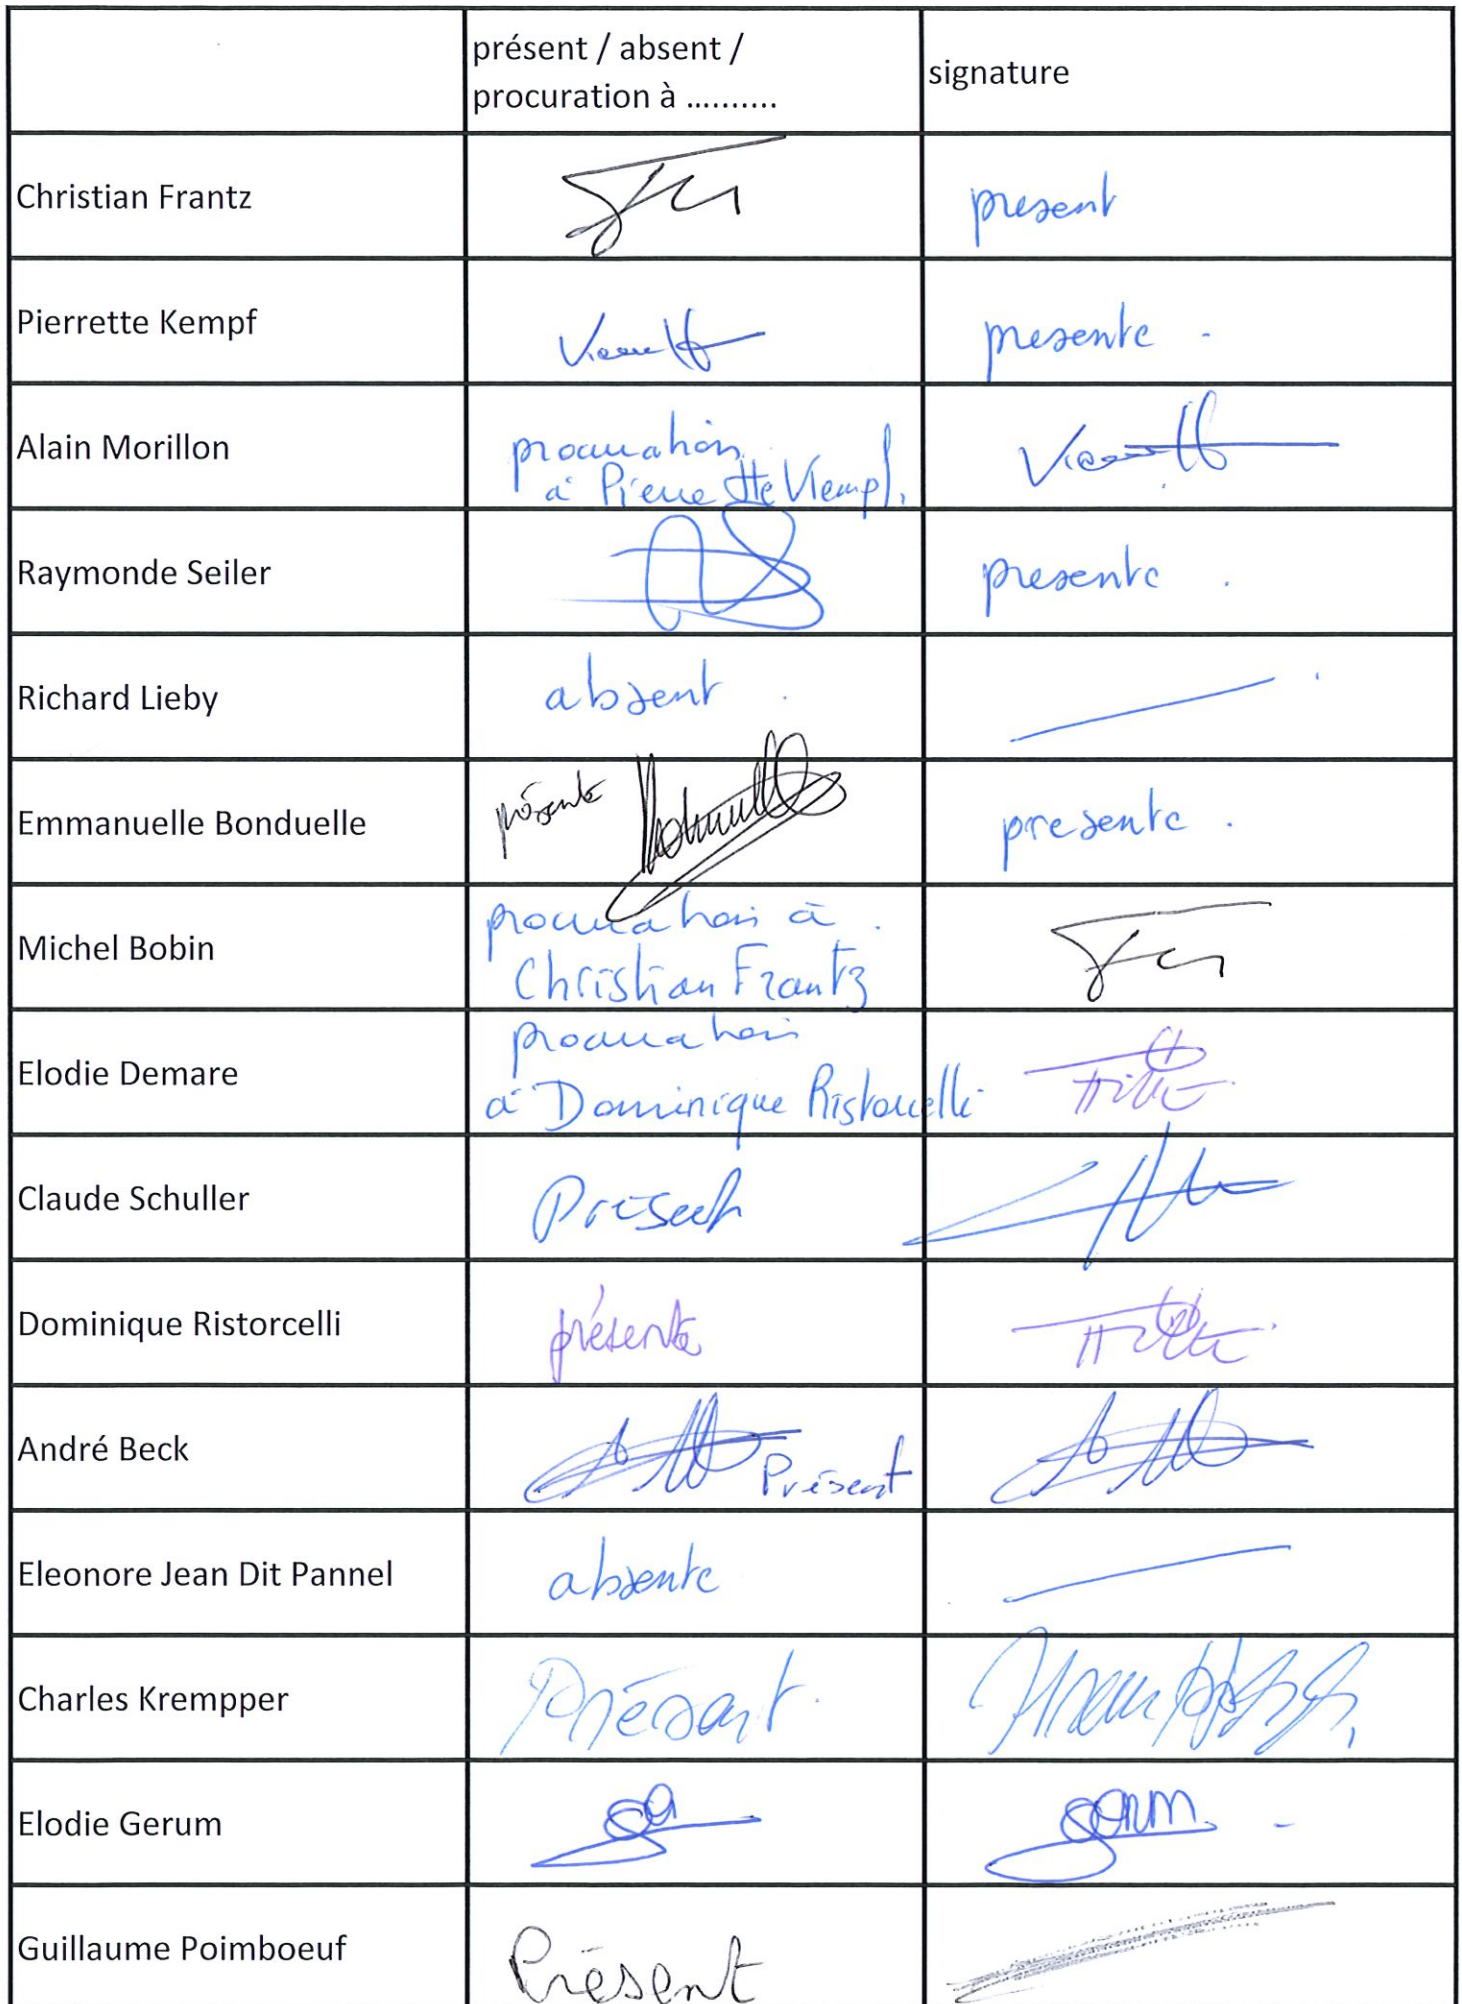 présent / absent /
procuration à ..........
signature
Christian Frantz
present
Pierrette Kempf
presente
Alain Morillon
procuration
à Pierrette Kempf
Raymonde Seiler
presente
Richard Lieby
absent
Emmanuelle Bonduelle
présente
presente
Michel Bobin
procuration à
Christian Frantz
Elodie Demare
procuration
à Dominique Ristorcelli
Claude Schuller
Présent
Dominique Ristorcelli
présente
André Beck
Présent
Eleonore Jean Dit Pannel
absente
Charles Krempper
Présent
Elodie Gerum
Gerum
Guillaume Poimboeuf
Présent